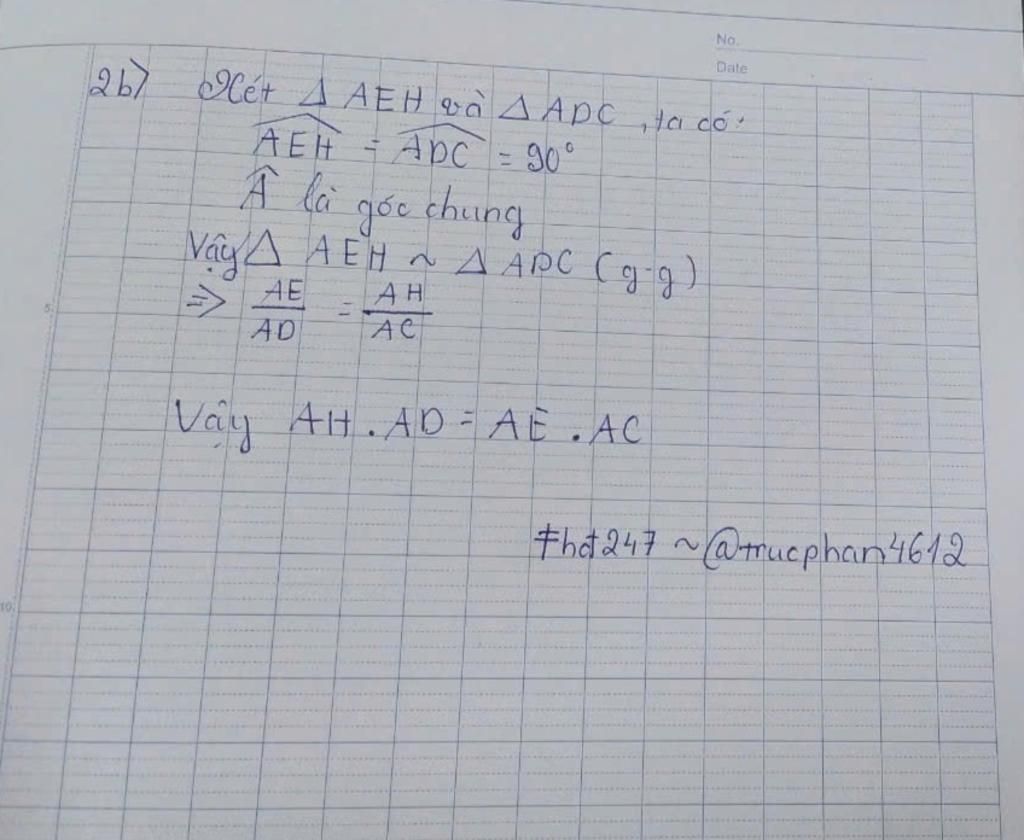 No.
Date
2b) Xét Δ AEH và Δ ADC, ta có:
\widehat{AEH} = \widehat{ADC} = 90°
Â là góc chung
Vậy Δ AEH ~ Δ ADC (g-g)
⇒ AE/AD = AH/AC
5
Vậy AH . AD = AE . AC
Hht247 ~ @trucphan4612
10